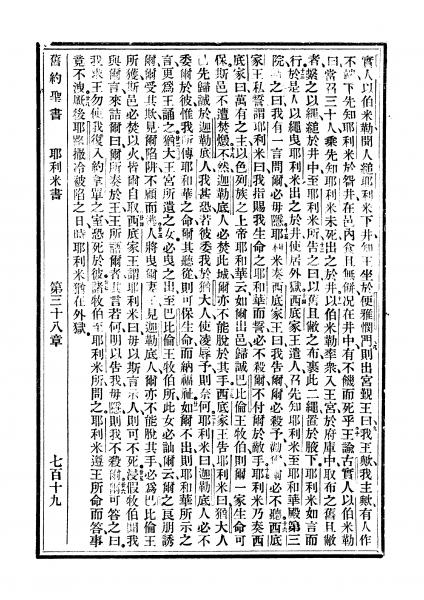 實人以伯米勒聞人縋耶利米下井知王坐於便雅憫門則出宮覲王曰我王歟我主歟有人作
不下先知耶利米於眢井在邑內食且無餅況在井中有不饑而死乎王諭古實人以伯米勒
曰當召三十人乘先知耶利米未死出之於井以伯米勒率衆入王宮於府庫中取布之舊且敝
者絮之以繩縋於井中至耶利米所告之曰以舊且敝之布裹此二繩置於腋下耶利米如言而
行於是人以繩曳耶利米出之於井使居外獄西底家王遣人召先知耶利米至耶和華殿第三
院詰之曰我有一言問爾必毋隱耶利米奏西底家王曰我告爾爾必殺予勸爾爾必不聽西底
家王私誓謂耶利米曰我指賜我生命之耶和華而誓必不殺爾不付爾於敵手耶利米乃奏西
底家曰萬有之主以色列族之上帝耶和華云如爾出邑歸誠巴比倫王牧伯則爾一家生命可
保斯邑不遭焚燬不然迦勒底人必焚此城爾亦不能脫於其手西底家王告耶利米曰猶大人
已先歸誠於迦勒底人我甚恐若彼委我於猶大人使凌辱予則奈何耶利米曰迦勒底人必不
委爾於彼惟我所傳耶和華之命爾其聽從則可保生命而納福祉如爾不出則耶和華所示之
言更爲王誦之猶大王宮所遣之女必曳之出至巴比倫王牧伯所此女必訕爾云爾之良朋誘
爾爾受其欺見爾陷阱不顧而人將曳爾妻子見迦勒底人爾亦不能脫其手必爲巴比倫王
所獲斯邑必焚以火皆爾自取西底家王謂耶利米曰毋以斯言示人則可不死浸假牧伯聞我
與爾言來詰爾曰爾所奏於王王所語爾者其言若何明以告我毋隱則我不殺爾爾可答之曰
我求王勿使我復入約拿單之室恐死於彼諸牧伯至耶利米所問之耶利米遵王所命而答事
竟不洩厥後耶路撒冷被陷之日時耶利米猶在外獄
舊約聖書 耶利米書 第三十八章 七百十九